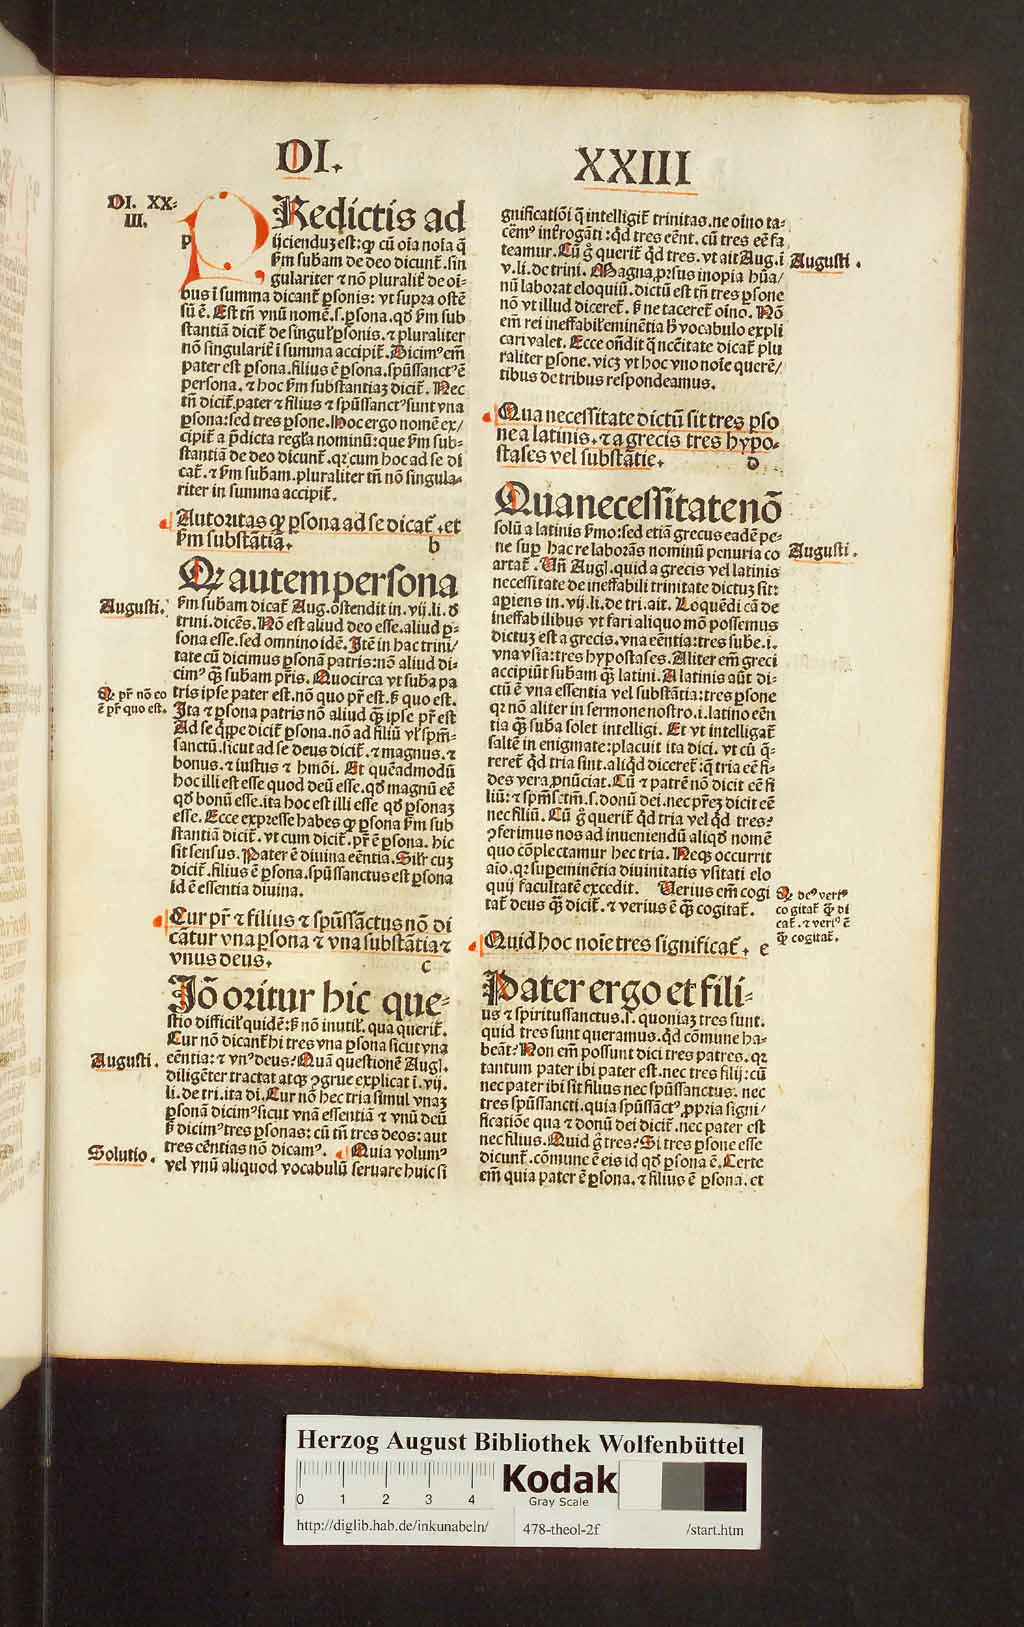 DI.
XXIII
DI. XX-
III.
PRedictis ad
ijcienduꝫ est: ꝙ cū oīa noīa q̄
ẜm subam de deo dicunt᷑. sin
gulariter ⁊ nō pluralit᷑ de oī-
bus ī summa dicant᷑ ꝑsonis: vt supra ostē
sū ē. Est tn̄ vnū nomē .s. ꝑsona. qd̓ ẜm sub
stantiā dicit᷑ de singul̓ ꝑsonis. ⁊ pluraliter
nō singularit᷑ ī summa accipit᷑. Dicimꝰ em̄
pater est ꝑsona. filius ē ꝑsona. spūssanctꝰ ē
persona. ⁊ hoc ẜm substantiaꝫ dicit᷑. Nec
tn̄ dicit᷑. pater ⁊ filius ⁊ spūssanctꝰ sunt vna
ꝑsona: sed tres ꝑsone. Hoc ergo nomē ex/
cipit᷑ a p̄dicta regl̓a nominū: que ẜm sub-
stantiā de deo dicunt᷑. qꝛ cum hoc ad se di
cat᷑. ⁊ ẜm subam̄. pluraliter tn̄ nō singula-
riter in summa accipit᷑.
Autoritas ꝙ ꝑsona ad se dicat᷑. et
ẜm substātiā. b
Qꝛ autem persona
Augusti.
ẜm subam dicat᷑ Aug. ostendit in .vij. li. d̓
trini. dicēs. Nō est aliud deo esse. aliud ꝑ-
sona esse. sed omnino idē. Itē in hac trini/
tate cū dicimus ꝑsonā patris: nō aliud di-
cimꝰ q̄ꝫ subam pr̄is. Quocirca vt suba pa
Qꝛ pr̄ nō eo
ē pr̄ quo est.
tris ipse pater est. nō quo pr̄ est. ẜ quo est.
Ita ⁊ ꝑsona patris nō aliud q̄ꝫ ipse pr̄ est
Ad se q̄ppe dicit᷑ ꝑsona. nō ad filiū vl̓ spm̄-
sanctū. sicut ad se deus dicit᷑. ⁊ magnus. ⁊
bonus. ⁊ iustus ⁊ hmōi. Et quēadmodū
hoc illi est esse quod deū esse. qd̓ magnū eē
qd̓ bonū esse. ita hoc est illi esse qd̓ ꝑsonaꝫ
esse. Ecce expresse habes ꝙ ꝑsona ẜm sub
stantiā dicit᷑. vt cum dicit᷑. pr̄ ē ꝑsona. hic
sit sensus. Pater ē diuina eēntia. Sil̓r cuꝫ
dicit᷑. filius ē ꝑsona. spūssanctus est ꝑsona
id ē essentia diuina.
Cur pr̄ ⁊ filius ⁊ spūssāctus nō di
cātur vna ꝑsona ⁊ vna substātia ⁊
vnus deus. c
Iō oritur hic que-
stio difficil̓ quidē: ẜ nō inutil̓. qua querit᷑.
Cur nō dicant᷑ hi tres vna ꝑsona sicut vna
Augusti.
eēntia: ⁊ vnꝰ deus? Quā questionē Augl̓.
diligēter tractat atqꝫ ꝯgrue explicat ī .vij.
li. de tri. ita di. Cur nō hec tria simul vnaꝫ
ꝑsonā dicimꝰ sicut vnā essentiā ⁊ vnū deū
ẜ dicimꝰ tres ꝑsonas: cū tn̄ tres deos: aut
Solutio.
tres cēntias nō dicamꝰ. Quia volumꝰ
vel vnū aliquod vocabulū seruare huic si
gnificatiōi q̄ intelligit᷑ trinitas. ne oīno ta-
cēmꝰ int̓rogāti: qd̓ tres eēnt. cū tres eē fa
teamur. Cū gͦ querit᷑ qd̓ tres. vt ait Aug. ī
Augusti.
v. li. de trini. Magna ꝓrsus inopia hūa/
nū laborat eloquiū. dictū est tn̄ tres ꝑsone
nō vt illud diceret᷑. ẜ ne taceret᷑ oīno. Nō
em̄ rei ineffabil̓ eminētia h̓ vocabulo expli
cari valet. Ecce on̄dit q̄ nc̄itate dicat᷑ plu
raliter ꝑsone. vicꝫ vt hoc vno noīe querē/
tibus de tribus respondeamus.
Qua necessitate dictū sit tres ꝑso
ne a latinis. ⁊ a grecis tres hypo-
stases vel substātie. D
Qua necessitate nō
solū a latinis ẜmo: sed etiā grecus eadē pe-
ne sup̱ hac re laborās nominū penuria co
Augusti.
artat᷑. Vn̄ Augl̓. quid a grecis vel latinis
necessitate de ineffabili trinitate dictuꝫ sit:
aꝑiens in .vij. li. de tri. ait. Loquēdi cā de
ineffabilibus vt fari aliquo mō possemus
dictuꝫ est a grecis. vna eēntia: tres sube .i.
vna vsia: tres hypostases. Aliter em̄ greci
accipiūt subam q̄ꝫ latini. A latinis aūt di-
ctū ē vna essentia vel substātia: tres ꝑsone
qꝛ nō aliter in sermone nostro .i. latino eēn
tia q̄ꝫ suba solet intelligi. Et vt intelligat᷑
saltē in enigmate: placuit ita dici. vt cū q̄-
reret᷑ qd̓ tria sint. aliqd̓ diceret᷑: q̄ tria eē fi-
des vera ꝓnūciat. Cū ⁊ patrē nō dicit eē fi
liū: ⁊ spm̄sctm̄ .s. donū dei. nec pr̄eꝫ dicit eē
nec filiū. Cū gͦ querit᷑ qd̓ tria vel qd̓ tres?
ꝯferimus nos ad inueniendū aliqd̓ nomē
quo cōplectamur hec tria. Neqꝫ occurrit
aīo. qꝛ suꝑeminētia diuinitatis vsitati elo
quij facultatē excedit. Verius em̄ cogi
tat᷑ deus q̄ꝫ dicit᷑. ⁊ verius ē q̄ꝫ cogitat᷑.
Qꝛ deꝰ veriꝰ
cogitat᷑ q̄ꝫ di
cat᷑. ⁊ veriꝰ ē
q̄ꝫ cogitat᷑.
Quid hoc noīe tres significat᷑. e
Pater ergo et fili-
us ⁊ spiritussanctus .i. quoniaꝫ tres sunt.
quid tres sunt queramus. qd̓ cōmune ha-
beāt? Non em̄ possunt dici tres patres. qꝛ
tantum pater ibi pater est. nec tres filij: cū
nec pater ibi sit filius nec spūssanctus. nec
tres spūssancti. quia spūssāctꝰ ꝓpria signi/
ficatiōe qua ⁊ donū dei dicit᷑. nec pater est
nec filius. Quid gͦ tres? Si tres ꝑsone esse
dicunt᷑. cōmune ē eis id qd̓ ꝑsona ē. Certe
em̄ quia pater ē ꝑsona. ⁊ filius ē ꝑsona. et
Herzog August Bibliothek Wolfenbüttel
0 1 2 3 4
Kodak
Gray Scale
http://diglib.hab.de/inkunabeln/ 478-theol-2f /start.htm